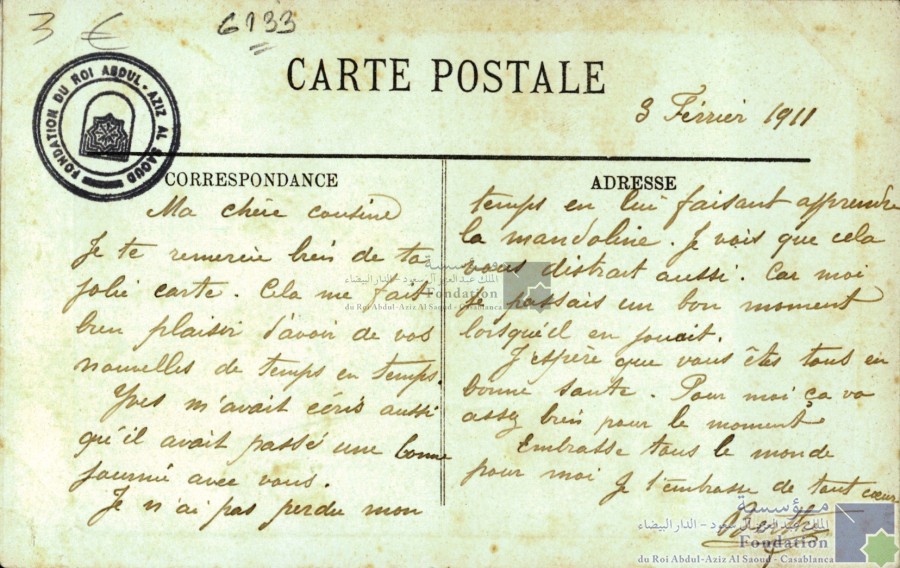 3 €
6133
FONDATION DU ROI ABDUL-AZIZ AL SAOUD
CARTE POSTALE
3 Février 1911
CORRESPONDANCE
Ma chère cousine
Je te remercie bien de ta
jolie carte. Cela me fait
bien plaisir d'avoir de vos
nouvelles de temps en temps.
Yves m'avait écris aussi
qu'il avait passé une bonne
journée avec vous.
Je n'ai pas perdu mon
ADRESSE
temps en lui faisant apprendre
la mandoline. Je vois que cela
vous distrait aussi. Car moi
je passais un bon moment
lorsqu'il en jouait.
J'espère que vous êtes tous en
bonne santé. Pour moi ça va
assez bien pour le moment
Embrasse tous le monde
pour moi Je t'embrasse de tout cœur
مؤسسة
الملك عبد العزيز آل سعود - الدار البيضاء
Fondation
du Roi Abdul-Aziz Al Saoud - Casablanca
مؤسسة
الملك عبد العزيز آل سعود - الدار البيضاء
Fondation
du Roi Abdul-Aziz Al Saoud - Casablanca